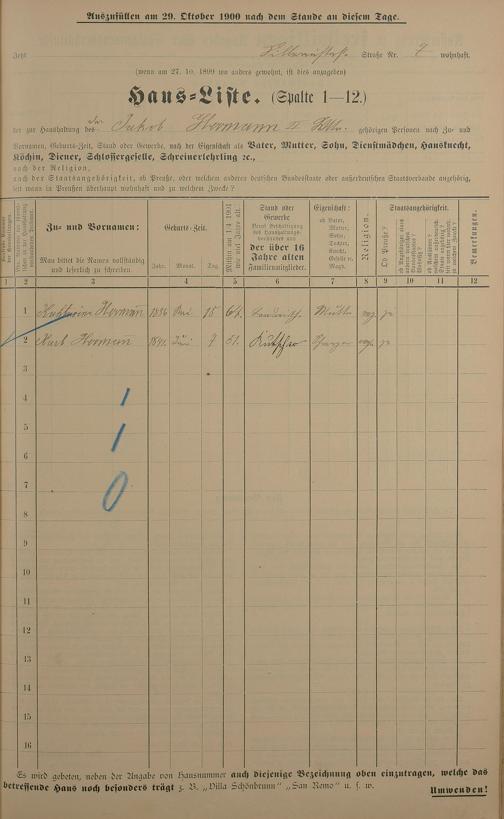 Auszufüllen am 29. Oktober 1900 nach dem Stande an diesem Tage.
Jetzt Straße Nr. 7 wohnhaft.
(wenn am 27. 10. 1899 wo anders gewohnt, ist dies anzugeben)
Haus-Liste. (Spalte 1—12.)
der zur Haushaltung des Jakob Hermann II gehörigen Personen nach Zu- und
Vornamen, Geburts-Zeit, Stand oder Gewerbe, nach der Eigenschaft als Vater, Mutter, Sohn, Dienstmädchen, Hausknecht,
Köchin, Diener, Schlossergeselle, Schreinerlehrling ꝛc.,
nach der Religion,
nach der Staatsangehörigkeit, ob Preuße, oder welchem anderen deutschen Bundesstaate oder außerdeutschen Staatsverbande angehörig,
seit wann in Preußen überhaupt wohnhaft und zu welchem Zwecke?
Zu- und Vornamen:
Man bittet die Namen vollständig
und leserlich zu schreiben.
Geburts-Zeit.
Jahr. Monat. Tag.
Stand oder
Gewerbe
der über 16
Jahre alten
Familienmitglieder.
Eigenschaft:
ob Vater,
Mutter,
Sohn,
Tochter,
Knecht,
Geselle u.
Magd.
Religion.
Staatsangehörigkeit.
Ob Preuße?
Bemerkungen.
1 2 3 4 5 6 7 8 9 10 11 12
1 Katharina Hermann 1836 Mai 15 64 Landwirth. Mutter ev. ja
2 Karl Hermann Juni 9 51. Kutscher ev. ja
3
4 1
5 1
6
7 0
8
9
10
11
12
13
14
15
16
Es wird gebeten, neben der Angabe von Hausnummer auch diejenige Bezeichnung oben einzutragen, welche das
betreffende Haus noch besonders trägt z. B. „Villa Schönbrunn" „San Remo" u. s. w.
Umwenden!